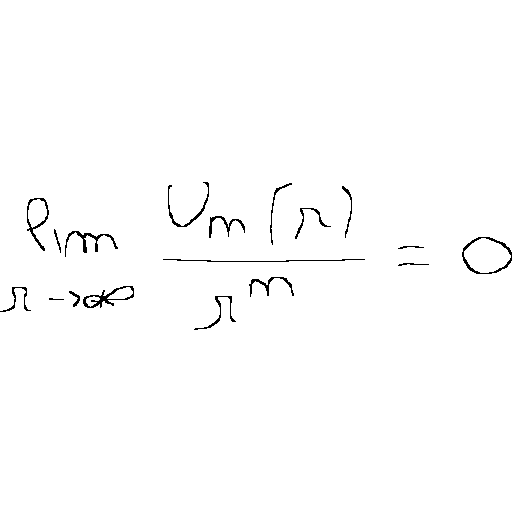 \lim_{r \to \infty} \frac{U_m(r)}{r^m} = 0